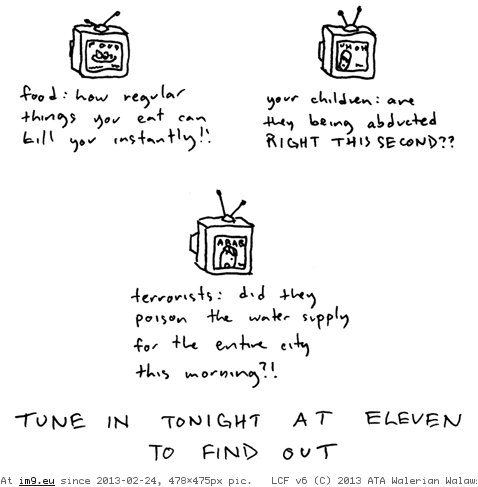 FOOD
food: how regular
things you eat can
kill you instantly!!
your children: are
they being abducted
RIGHT THIS SECOND??
ARAB
terrorists: did they
poison the water supply
for the entire city
this morning?!
TUNE IN TONIGHT AT ELEVEN
TO FIND OUT
At im9.eu since 2013-02-24, 478×475px pic. LCF v6 (C) 2013 ATA Walerian Walaws